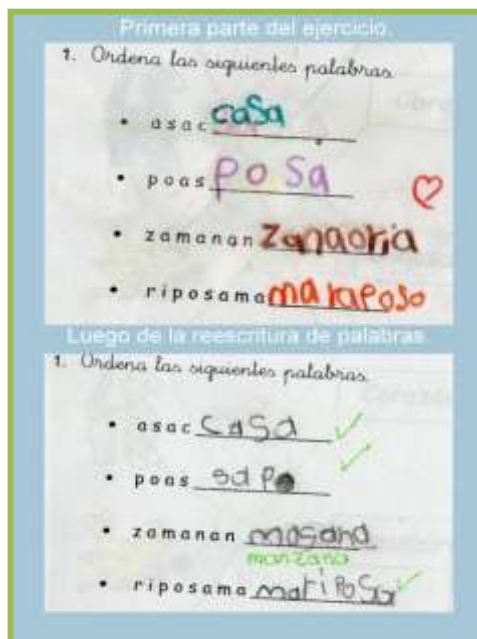 Primera parte del ejercicio.
1. Ordena las siguientes palabras
• asac casa
• poas posa
• zamanan zanaoria
• riposama maraposo
Luego de la reescritura de palabras
1. Ordena las siguientes palabras.
• asac casa
• poas sapo
• zamanan masana
manzana
• riposama mariposa